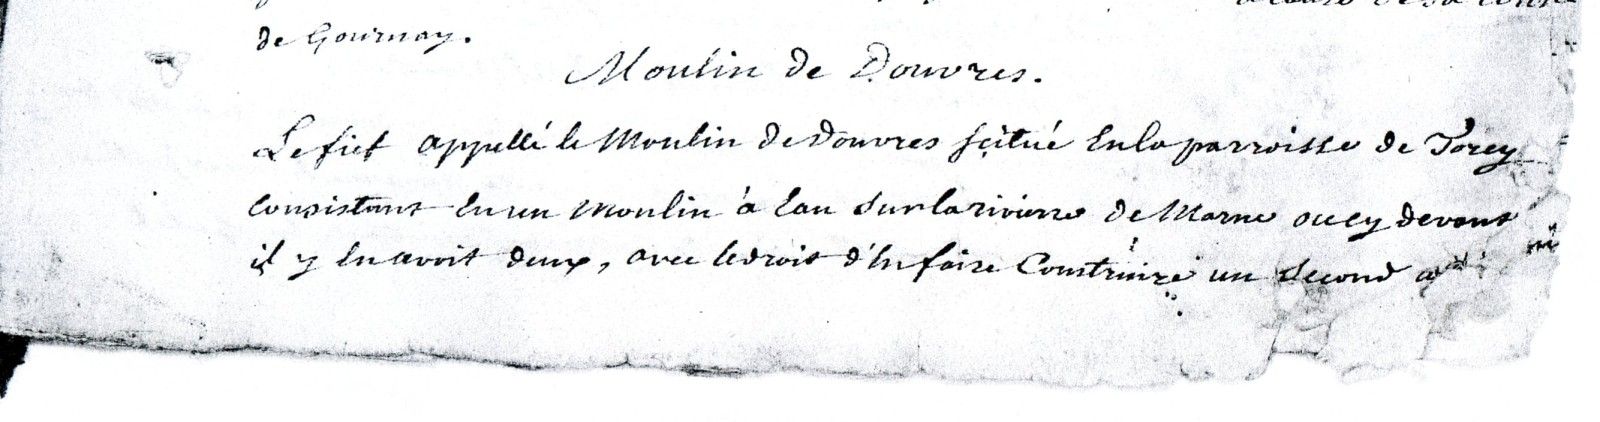 a cause de sa
de Gournay.
Moulin de Douvres.
Le fief appellé le Moulin de Douvres scitué en la parroisse de Torcy
consistant en un Moulin à eau sur la riviere de Marne ou cy devant
il y en avoit deux, avec le droit d'en faire Construire un second